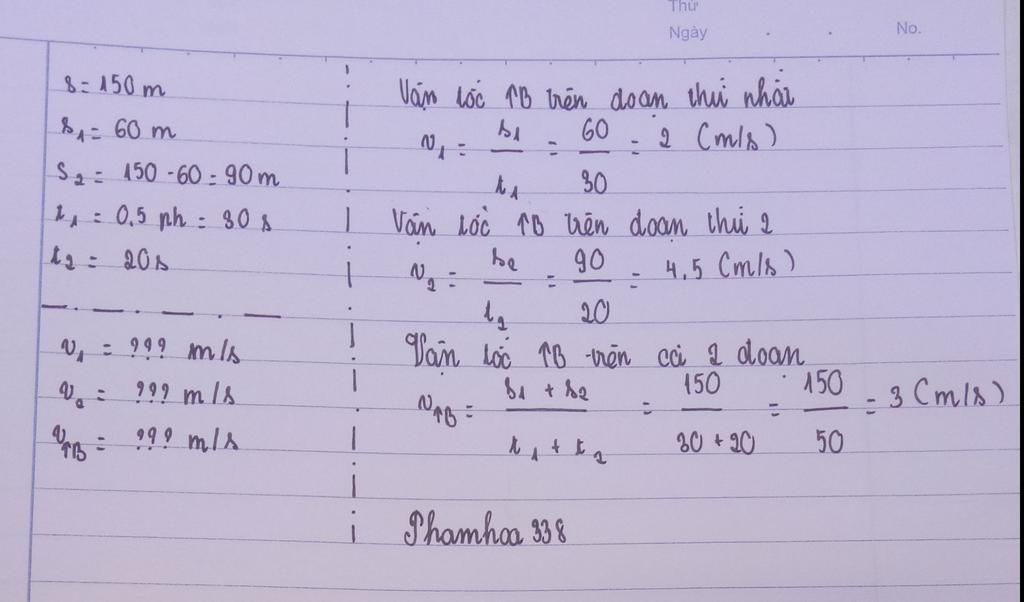 Thứ
Ngày . . No.
s = 150 m
s₁ = 60 m
s₂ = 150 - 60 = 90 m
t₁ = 0,5 ph = 30 s
t₂ = 20 s
v₁ = ??? m/s
v₂ = ??? m/s
v_TB = ??? m/s
Vận tốc TB trên đoạn thứ nhất
v₁ = s₁/t₁ = 60/30 = 2 (m/s)
Vận tốc TB trên đoạn thứ 2
v₂ = s₂/t₂ = 90/20 = 4,5 (m/s)
Vận tốc TB trên cả 2 đoạn
v_TB = (s₁ + s₂)/(t₁ + t₂) = 150/(30 + 20) = 150/50 = 3 (m/s)
Phamhoa 338